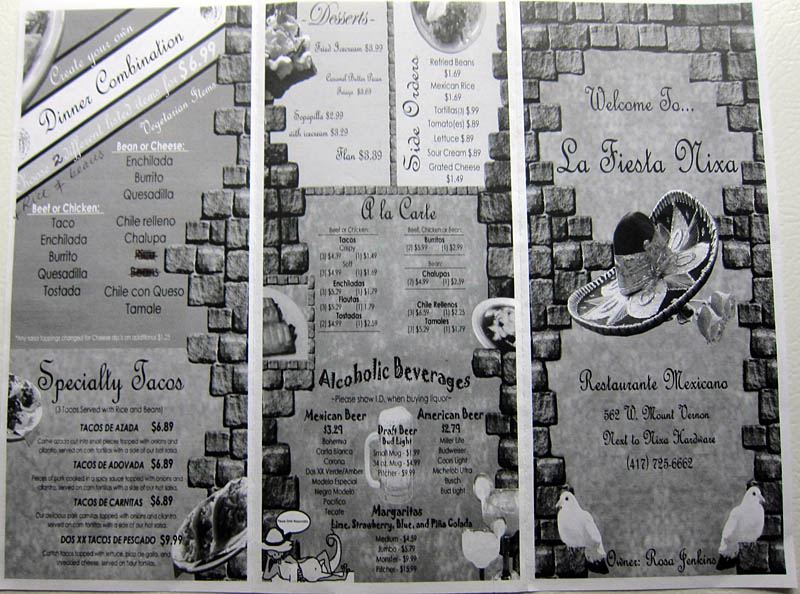 Create your own
Dinner Combination
Choose 2 different listed items for $6.99
Rice & beans
Vegetarian Items
Bean or Cheese:
Enchilada
Burrito
Quesadilla
Beef or Chicken:
Taco
Enchilada
Burrito
Quesadilla
Tostada
Chile relleno
Chalupa
Rice
Beans
Chile con Queso
Tamale
*Any salsa toppings changed for Cheese dip is an additional $1.25
Specialty Tacos
(3 Tacos Served with Rice and Beans)
TACOS DE AZADA $6.89
Carne azada cut into small pieces topped with onions and
cilantro, served on corn tortillas with a side of our hot salsa.
TACOS DE ADOVADA $6.89
Pieces of pork cooked in a spicy sauce topped with onions and
cilantro, served on corn tortillas with a side of our hot salsa.
TACOS DE CARNITAS $6.89
Our delicious pork carnitas topped with onions and cilantro
served on corn tortillas with a side of our hot salsa.
DOS XX TACOS DE PESCADO $9.99
Catfish tacos topped with lettuce, pico de gallo, and
shredded cheese, served on flour tortillas.
-Desserts-
Fried Icecream $3.99
Caramel Butter Pecan
$3.69
Sopapilla $2.99
with icecream $3.29
Flan $3.39
Side Orders
Refried Beans
$1.69
Mexican Rice
$1.69
Tortillas(3) $.99
Tomato(es) $.89
Lettuce $.89
Sour Cream $.89
Grated Cheese
$1.49
A la Carte
Beef or Chicken:
Tacos
Crispy
(3) $4.39 (1) $1.49
Soft
(3) $4.99 (1) $1.69
Enchiladas
(3) $5.29 (1) $1.79
Flautas
(3) $5.29 (1) 1.79
Tostadas
(2) $4.99 (1) $2.59
Beef, Chicken or Bean:
Burritos
(2) $5.99 (1) $2.99
Bean:
Chalupas
(2) $4.99 (1) $2.59
Chile Rellenos
(3) $6.59 (1) $2.25
Tamales
(3) $5.29 (1) $1.79
Alcoholic Beverages
~Please show I.D. when buying liquor~
Mexican Beer
$3.29
Bohemia
Carta Blanca
Corona
Dos XX Verde/Amber
Modelo Especial
Negro Modelo
Pacifico
Tecate
Draft Beer
Bud Light
Small Mug - $1.99
34 oz. Mug - $4.99
Pitcher - $9.99
American Beer
$2.79
Miller Lite
Budweiser
Coors Light
Michelob Ultra
Busch
Bud Light
Margaritas
Lime, Strawberry, Blue, and Piña Colada
Medium - $4.59
Jumbo - $5.79
Monster - $9.99
Pitcher - $15.99
Welcome To...
La Fiesta Nixa
Restaurante Mexicano
562 W. Mount Vernon
Next to Nixa Hardware
(417) 725-6662
Owner: Rosa Jenkins